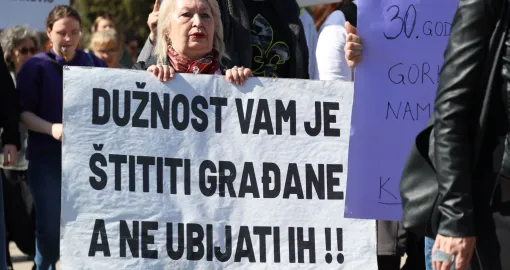 DUŽNOST VAM JE
ŠTITITI GRAĐANE
A NE UBIJATI IH !!
30. GOD
GORK
NAM